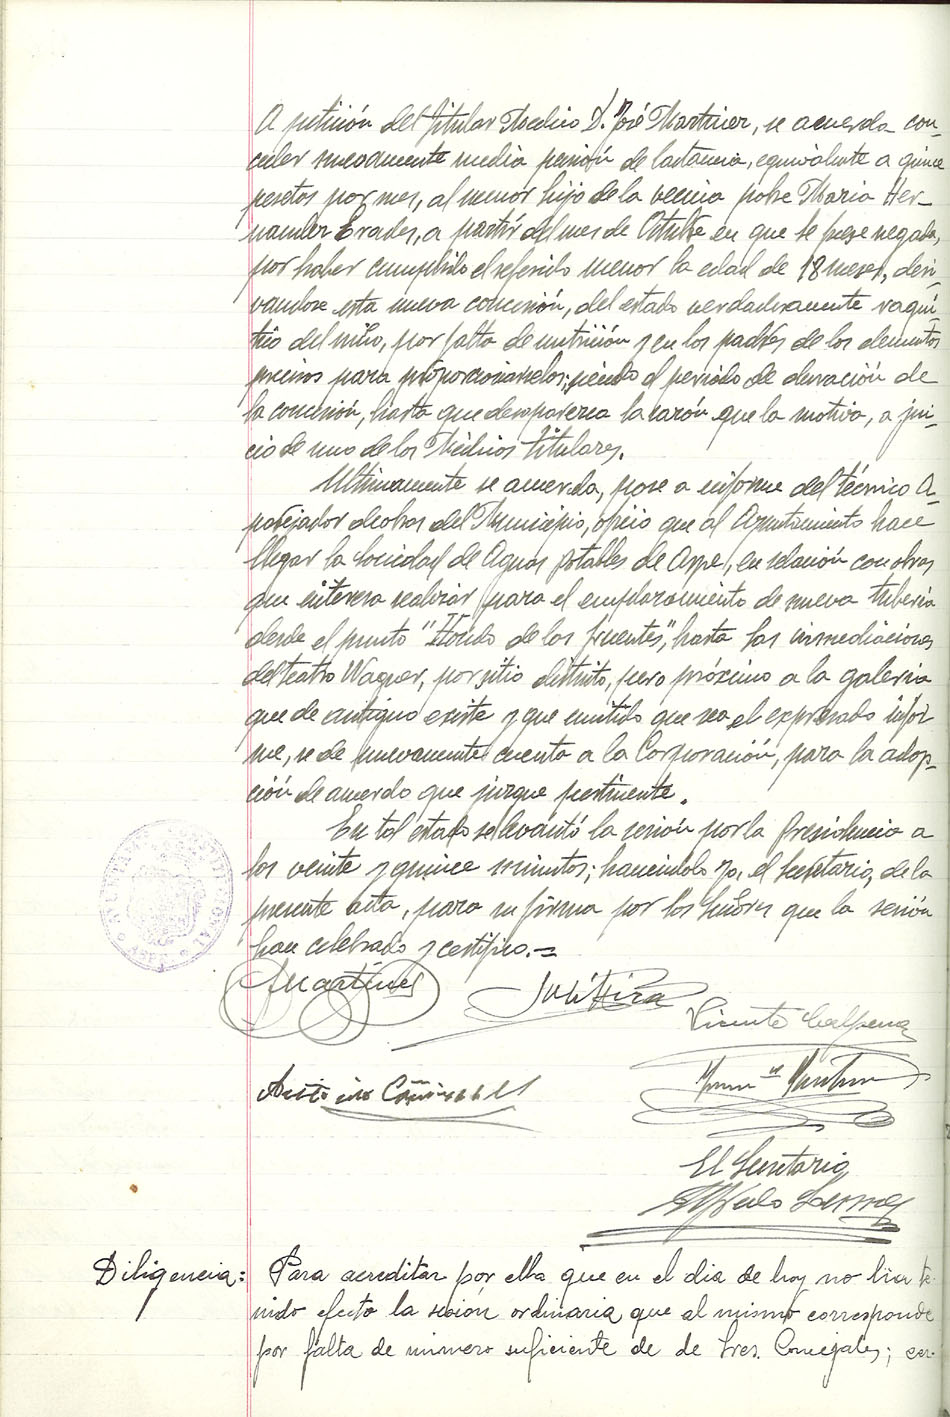 A petición del titular Medico D. José Martinez, se acuerda con-
ceder nuevamente media pensión de lactancia, equivalente a quince
pesetas por mes, al menor hijo de la vecina pobre Maria Her-
nandez Erades, a partir del mes de Octubre en que le fuese negada,
por haber cumplido el referido menor la edad de 18 meses, deri-
vandose esta nueva concesión, del estado verdaderamente raquí-
tico del niño, por falta de nutrición y en los padres de los elementos
precisos para proporcionarselos; siendo el periodo de duración de
la concesión, hasta que desaparezca la razón que la motiva, a jui-
cio de uno de los Médicos titulares.
Ultimamente se acuerda, pase a informe del técnico A-
parejador de obras del Municipio, oficio que al Ayuntamiento hace
llegar la Sociedad de Aguas potables de Aspe, en relación con obras
que interesa realizar para el emplazamiento de nueva tuberia
desde el punto "Hondo de las fuentes," hasta las inmediaciones
del teatro Wagner, por sitio distinto, pero próximo a la galeria
que de antiguo existe y que emitido que sea el expresado infor-
me, se de nuevamente cuenta a la Corporación, para la adop-
ción de acuerdo que juzgue pertinente.
En tal estado se levantó la sesión por la Presidencia a
las veinte y quince minutos; haciendolo yo, el Secretario, de la
presente acta, para su firma por los Señores que la sesión
han celebrado y certifico.-=
AYUNTAMIENTO CONSTITUCIONAL
ASPE
Martínez
Vicente Calpena
Antonio Cañizares
El Secretario
Diligencia: Para acreditar por ella que en el dia de hoy no ha te-
nido efecto la sesión ordinaria que al mismo corresponde
por falta de número suficiente de de Sres. Concejales; cer-